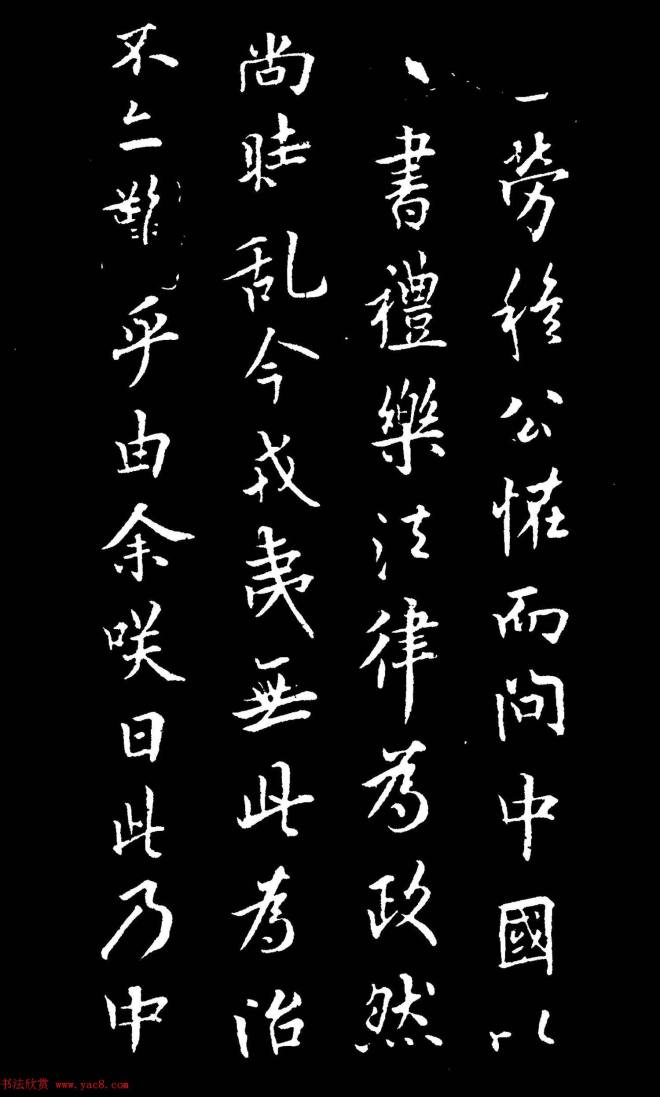 勞穆公恠而問中國以
書禮樂法律為政然
尚時乱今戎夷無此為治
不亦難乎由余咲曰此乃中
书法欣赏 www.yac8.com